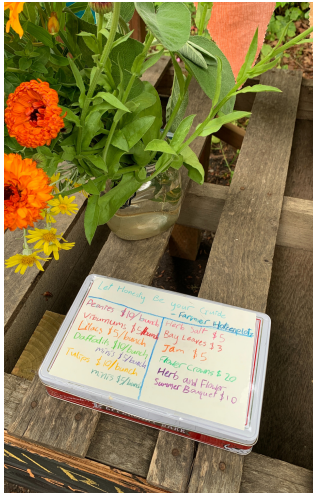 Let Honesty Be your Guide
- Farmer
Peonies $10/bunch
Viburnums $5/bunch
Lilacs $5/bunch
Daffodils $10/bunch
minis $5/bunch
Tulips $10/bunch
minis $5/bunch
Herb Salt $5
Bay Leaves $3
Jam $5
Flower Crowns $20
Herb and Flower
Summer Bouquet $10